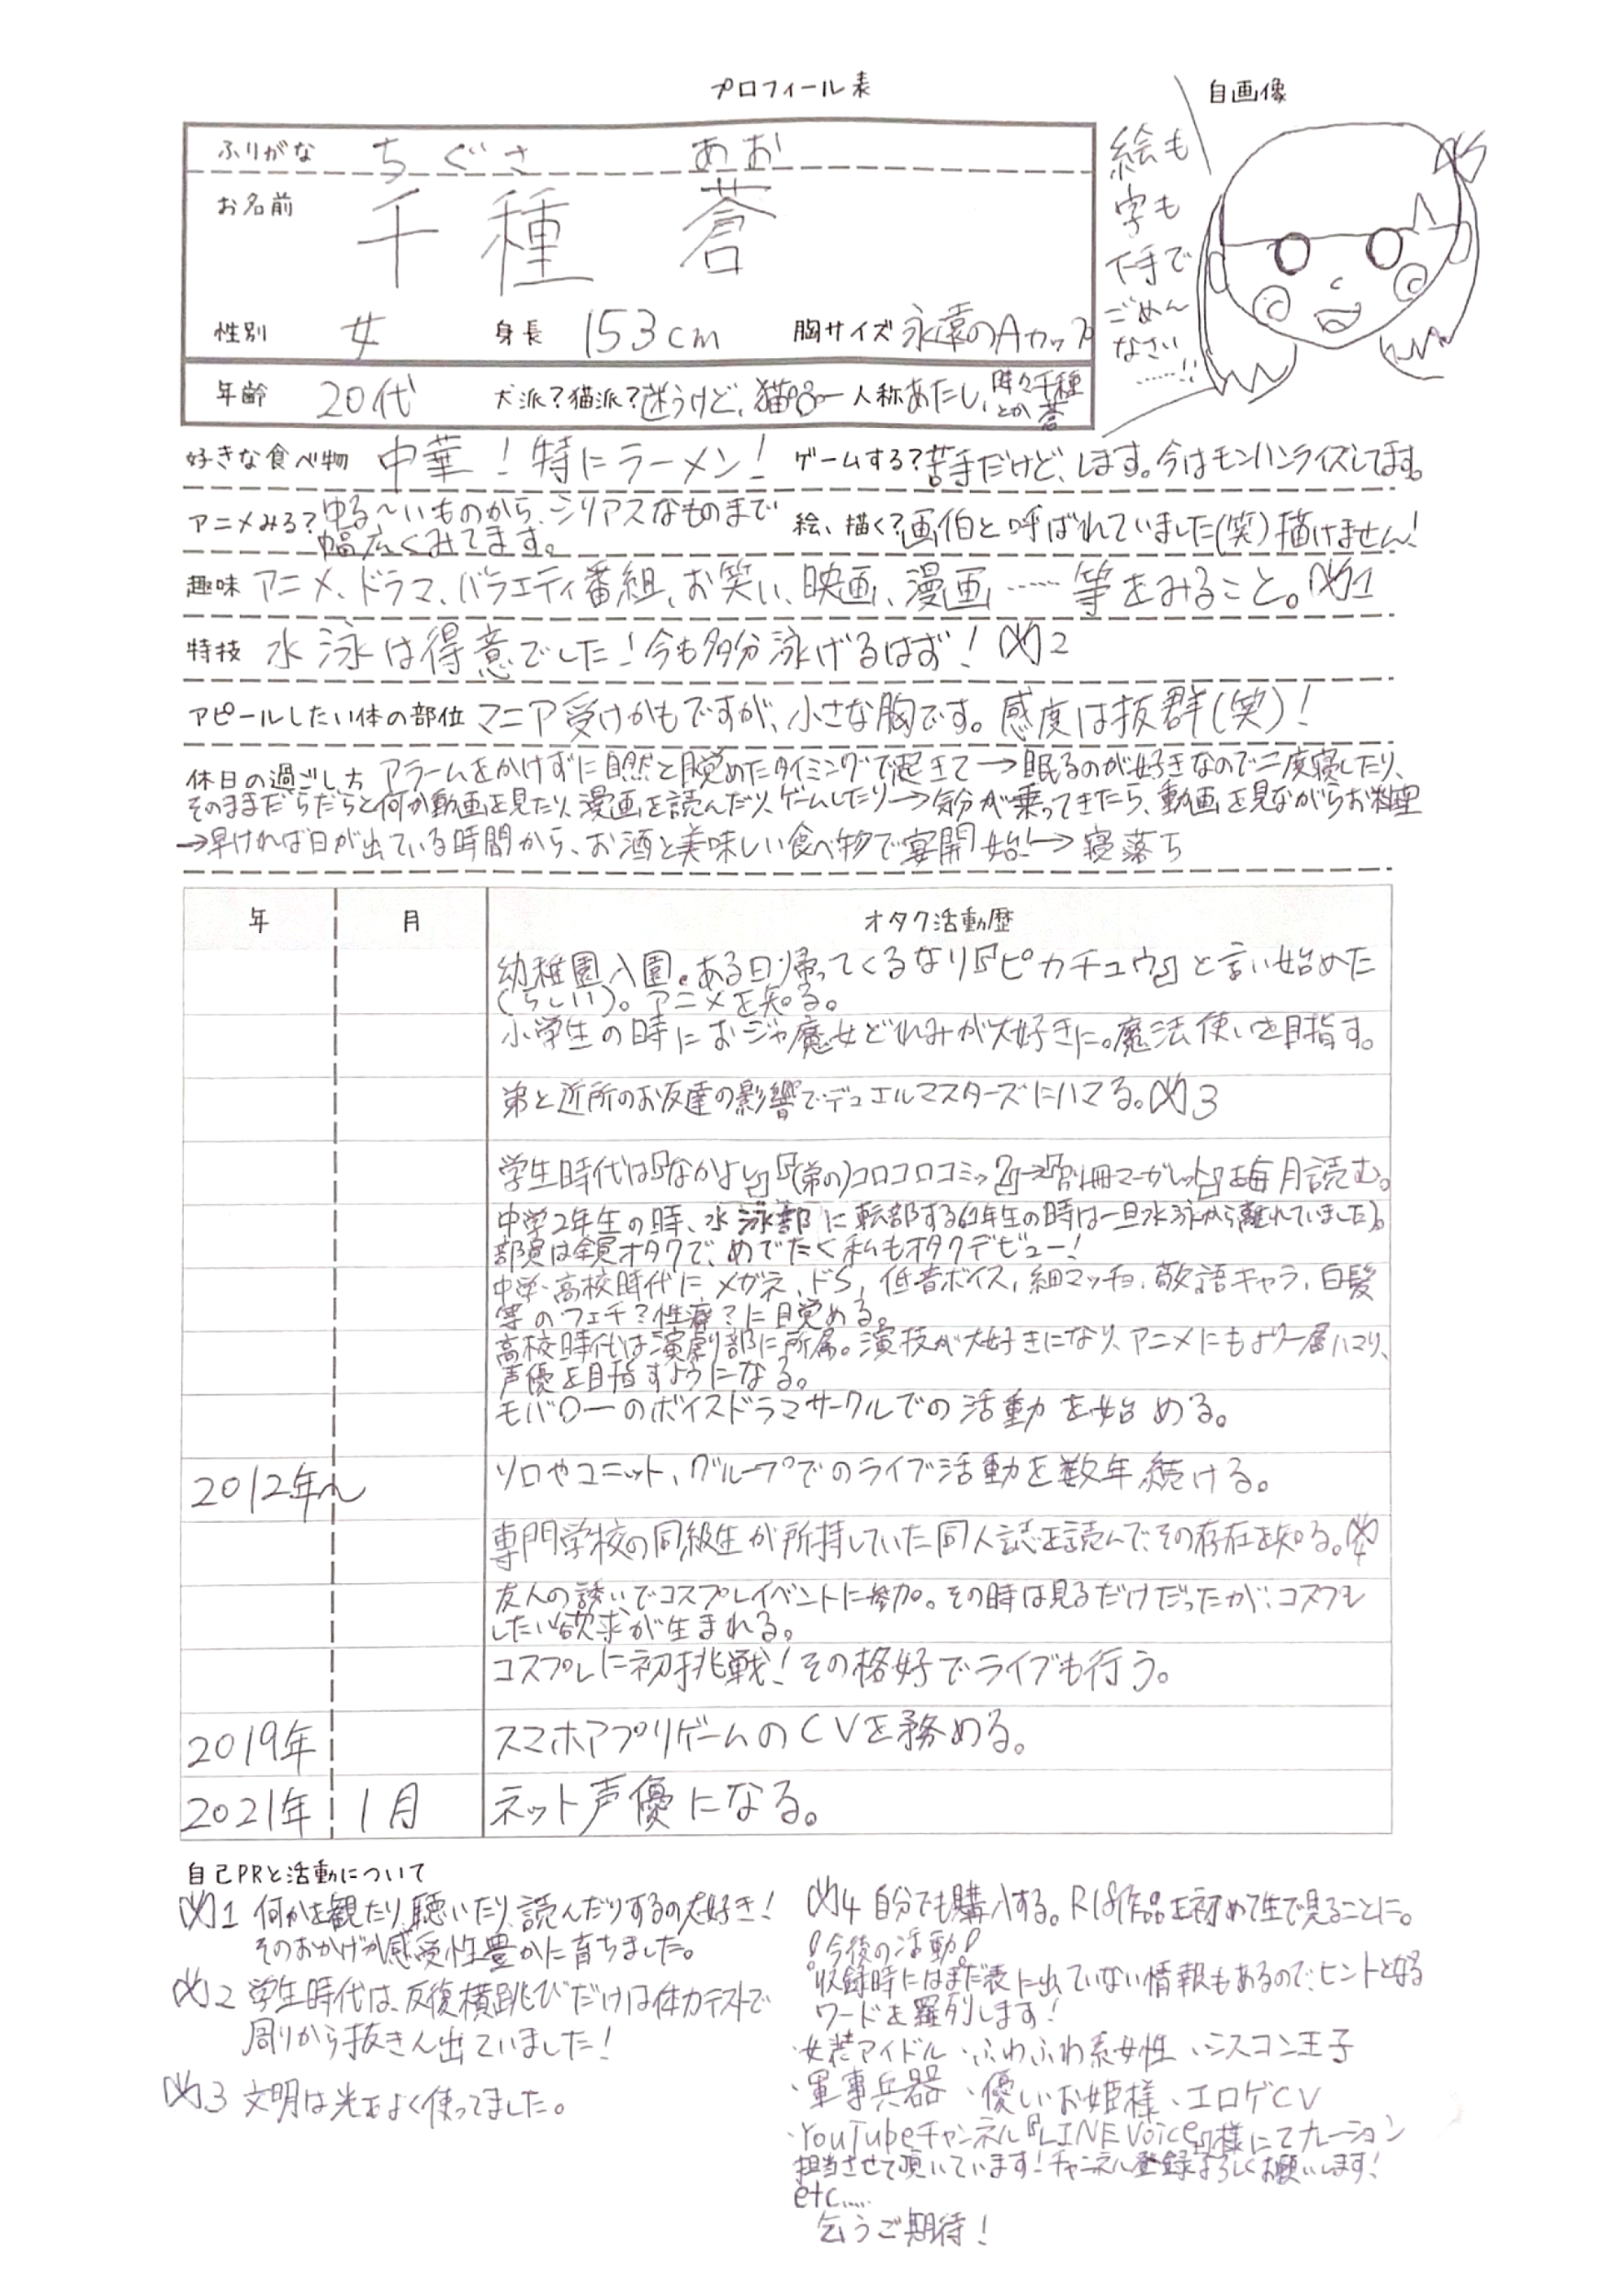 プロフィール表
自画像
絵も
字も
下手で
ごめん
なさい
……!!
ふりがな ちぐさ あお
お名前 千種 蒼
性別 女 身長 153cm 胸サイズ 永遠のAカップ
年齢 20代 犬派?猫派? 迷うけど、猫 一人称 あたし、時々千種とか蒼
好きな食べ物 中華!特にラーメン! ゲームする? 苦手だけど、します。今はモンハンライズしてます。
アニメみる? ゆる〜いものから、シリアスなものまで
幅広くみてます。
絵、描く? 画伯と呼ばれていました(笑)描けません!
趣味 アニメ、ドラマ、バラエティ番組、お笑い、映画、漫画……等をみること。※1
特技 水泳は得意でした!今も多分泳げるはず!※2
アピールしたい体の部位 マニア受けかもですが、小さな胸です。感度は抜群(笑)!
休日の過ごし方 アラームをかけずに自然と目覚めたタイミングで起きて→眠るのが好きなので二度寝したり、
そのままだらだらと何か動画を見たり、漫画を読んだり、ゲームしたり→気分が乗ってきたら、動画を見ながらお料理
→早ければ日が出ている時間から、お酒と美味しい食べ物で宴開始!→寝落ち
年 月 オタク活動歴
幼稚園入園。ある日帰ってくるなり『ピカチュウ』と言い始めた
(らしい)。アニメを知る。
小学生の時におジャ魔女どれみが大好きに。魔法使いを目指す。
弟と近所のお友達の影響でデュエルマスターズにハマる。※3
学生時代は『なかよし』『(弟の)コロコロコミック』→『別冊マーガレット』を毎月読む。
中学2年生の時、水泳部に転部する(1年生の時は一旦水泳から離れていました)。
部員は全員オタクで、めでたく私もオタクデビュー!
中学・高校時代に、メガネ、ドS、低音ボイス、細マッチョ、敬語キャラ、白髪
等のフェチ?性癖?に目覚める。
高校時代は演劇部に所属。演技が大好きになり、アニメにもより一層ハマり、
声優を目指すようになる。
モバローのボイスドラマサークルでの活動を始める。
2012年〜 ソロやユニット、グループでのライブ活動を数年続ける。
専門学校の同級生が所持していた同人誌を読んで、その存在を知る。※4
友人の誘いでコスプレイベントに参加。その時は見るだけだったが、コスプレ
したい欲求が生まれる。
コスプレに初挑戦!その格好でライブも行う。
2019年 スマホアプリゲームのCVを務める。
2021年 1月 ネット声優になる。
自己PRと活動について
※1 何かを観たり、聴いたり、読んだりするの大好き!
そのおかげか感受性豊かに育ちました。
※2 学生時代は、反復横跳びだけは体力テストで
周りから抜きん出ていました!
※3 文明は光をよく使ってました。
※4 自分でも購入する。R18作品を初めて生で見ることに。
!今後の活動!
収録時にはまだ表に出ていない情報もあるので、ヒントとなる
ワードを羅列します!
・女装アイドル ・ふわふわ系女性 ・シスコン王子
・軍事兵器 ・優しいお姫様 ・エロゲCV
・YouTubeチャンネル『LINE Voice』様にてナレーション
担当させて頂いています!チャンネル登録よろしくお願いします!
etc.....
乞うご期待!